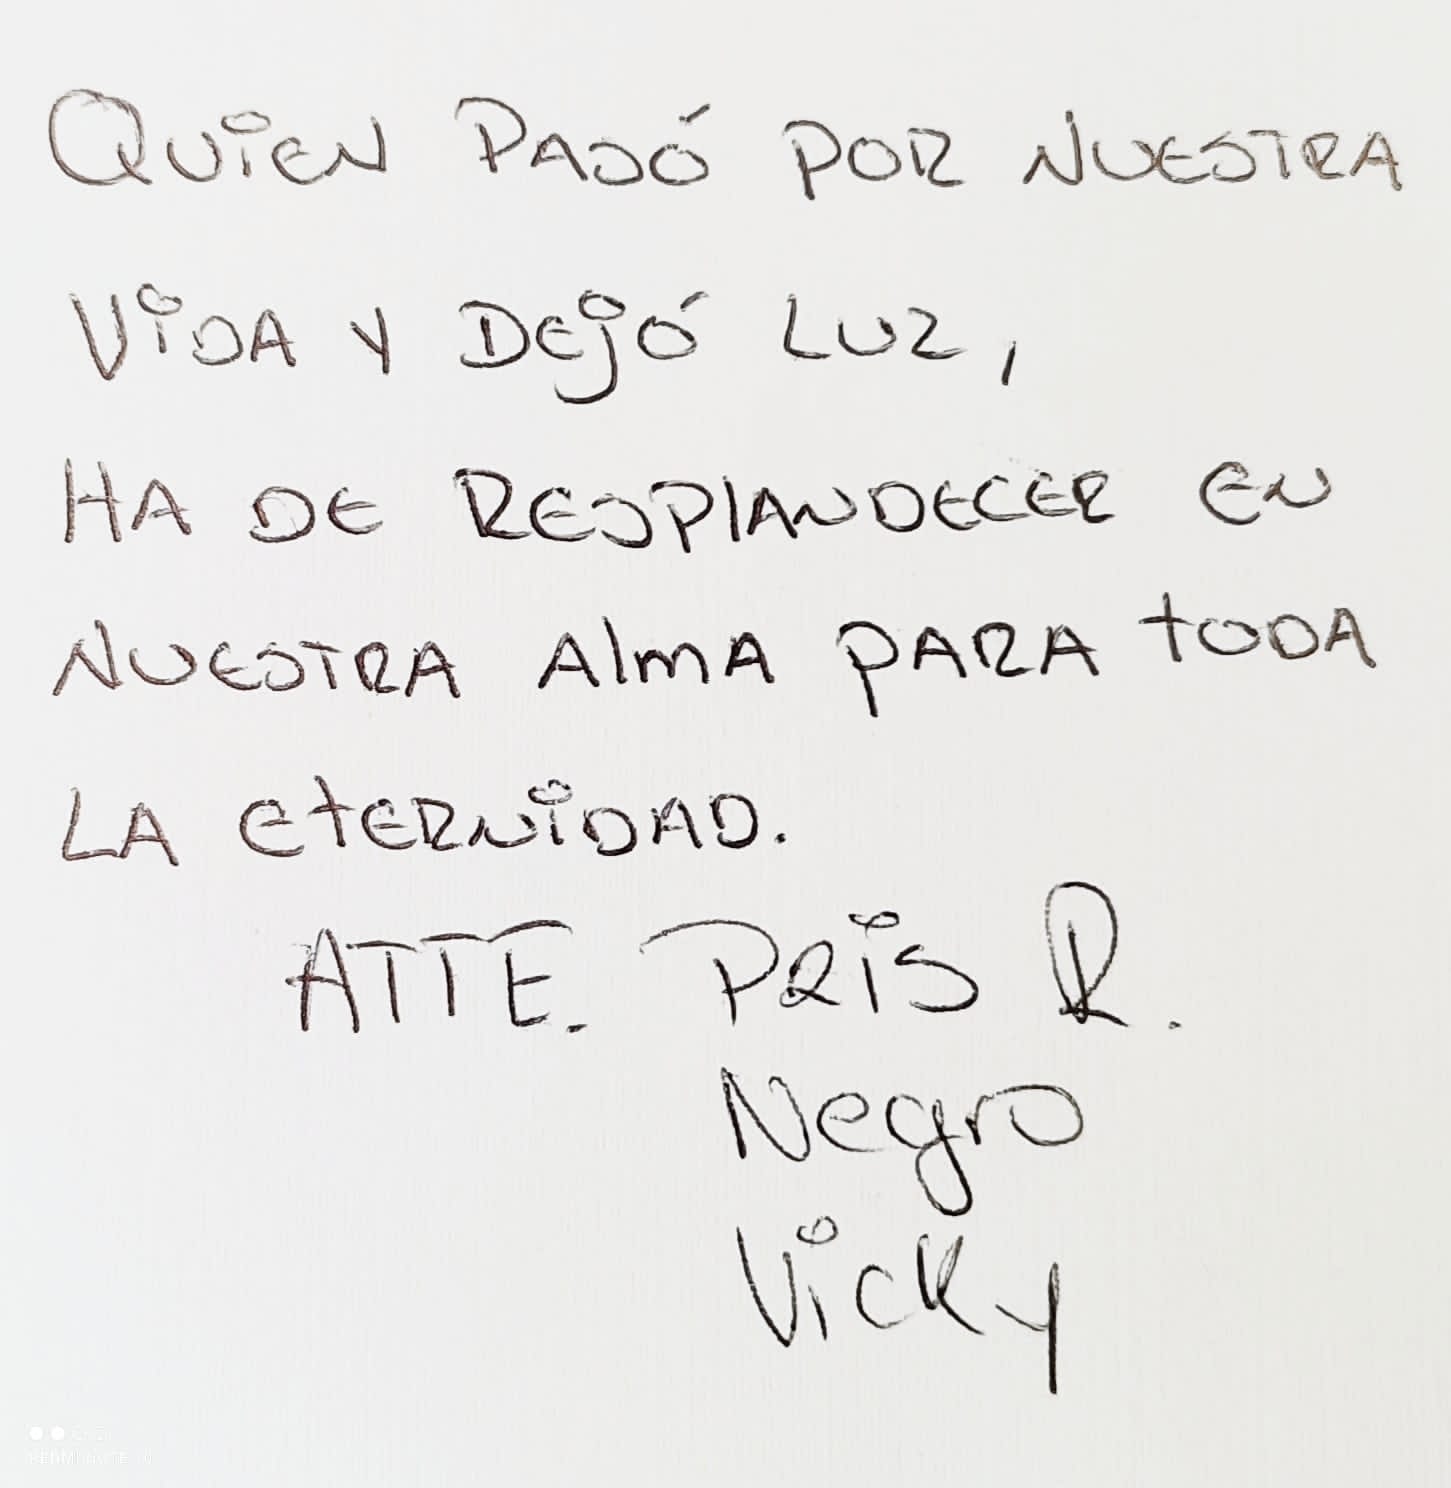 QUIEN PASÓ POR NUESTRA
VIDA Y DEJÓ LUZ,
HA DE RESPlANDECER EN
NUESTRA AlmA PARA TODA
LA ETERNIDAD.
ATTE. PRIS R.
Negro
Vicky